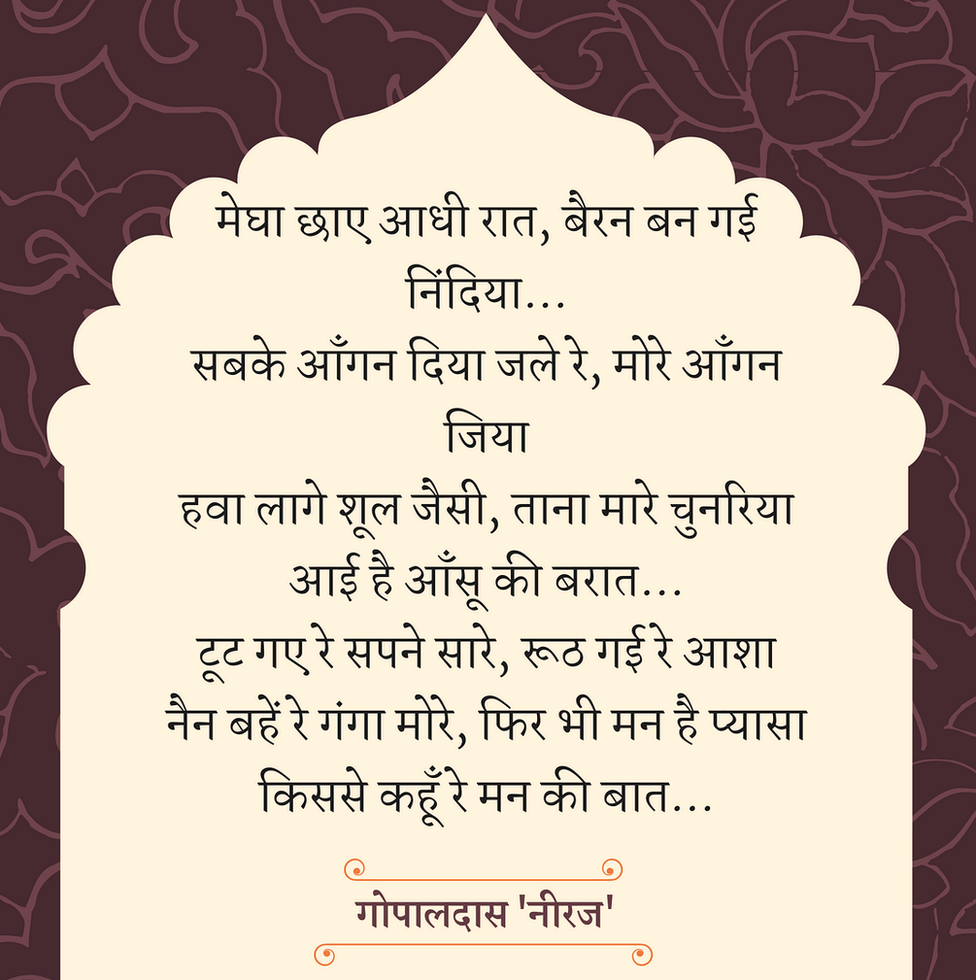 मेघा छाए आधी रात, बैरन बन गई
निंदिया...
सबके आँगन दिया जले रे, मोरे आँगन
जिया
हवा लागे शूल जैसी, ताना मारे चुनरिया
आई है आँसू की बरात...
टूट गए रे सपने सारे, रूठ गई रे आशा
नैन बहें रे गंगा मोरे, फिर भी मन है प्यासा
किससे कहूँ रे मन की बात...
गोपालदास 'नीरज'